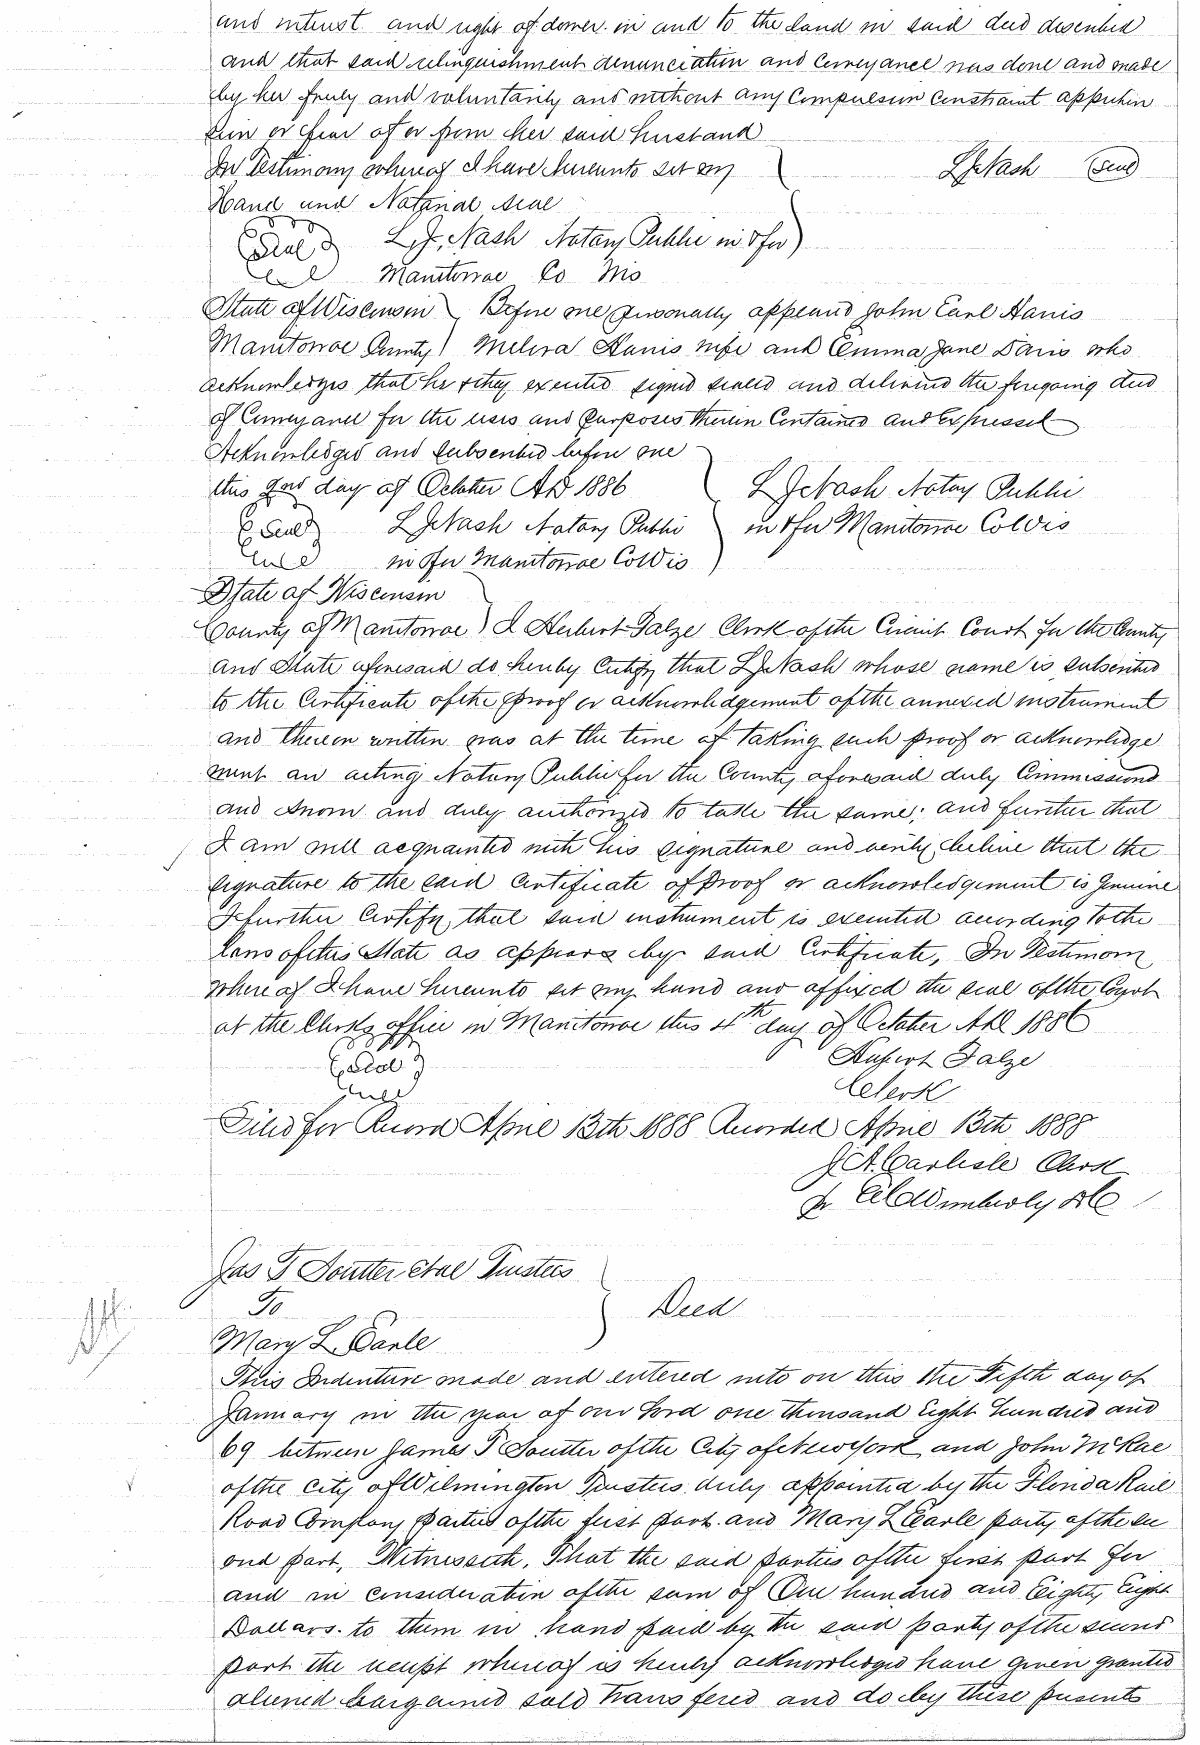 and interest and right of dower in and to the land in said deed described
and that said relinquishment denunciation and Conveyance was done and made
by her freely and voluntarily and without any Compulsion Constraint apprehen
sion or fear of or from her said husband
In Testimony whereof I have hereunto set my
L J Nash (Seal)
Hand and Notarial seal
Seal L. J. Nash Notary Public in & for
Manitowoc Co Wis
State of Wisconsin Before me personally appeared John Earl Harris
Manitowoc County Harris wife and Emma Jane Davis who
acknowledges that he & they executed signed sealed and delivered the foregoing deed
of Conveyance for the uses and purposes therein Contained and Expressed
Acknowledged and subscribed before me
this 2nd day of October AD 1886 L J Nash Notary Public
Seal L J Nash Notary Public in & for Manitowoc Co Wis
in & for Manitowoc Co Wis
State of Wisconsin
County of Manitowoc I Hubert Falze Clerk of the Circuit Court for the County
and State aforesaid do hereby Certify that L J Nash whose name is subscribed
to the Certificate of the proof or acknowledgement of the annexed instrument
and thereon written was at the time of taking such proof or acknowledge
ment an acting Notary Public for the County aforesaid duly Commissioned
and sworn and duly authorized to take the same; and further that
I am well acquainted with his signature and verily believe that the
signature to the said Certificate of proof or acknowledgement is genuine
I further Certify that said instrument is executed according to the
laws of this State as appears by said Certificate, In Testimony
where of I have hereunto set my hand and affixed the seal of the Court
at the Clerks office in Manitowoc this 4th day of October AD 1886
Seal Hubert Falze
Clerk
Filed for Record April 13th 1888 Recorded April 13th 1888
J A. Carlisle Clerk
Wimberly DC
Jas T Soutter et al Trustees
To Deed
Mary L Earle
This Indenture made and entered into on this the Fifth day of
January in the year of our Lord one thousand Eight hundred and
69 between James T Soutter of the City of New York and John McRae
of the City of Wilmington Trustees duly appointed by the Florida Rail
Road Company parties of the first part and Mary L Earle party of the sec
ond part, Witnesseth, That the said parties of the first part for
and in consideration of the sum of One hundred and Eighty Eight
Dollars. to them in hand paid by the said party of the second
part the receipt whereof is hereby acknowledged have given granted
aliened bargained sold transfered and do by these presents